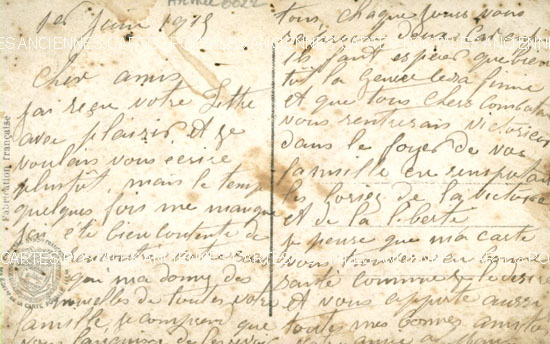 1er Juin 1915
Cher amis
j'ai reçu votre lettre
avec plaisir et je
voulais vous ecrire
plutôt, mais le temps
quelques fois me manque
j'ai ete bien contente de
qui ma donné des
nouvelles de toutes votre
famille, je comprend que
vous
tous, chaque jours vous
ils faut esperer que bien
tôt la Guerre sera finie
et que tous Chers combatan
vous rentrerais victorieu
dans le foyer de vos
famille en remportant
les
de la victoire
et de la liberte
je pense que ma carte
vous
en bonne
santé comme je le desire
et vous apporte aussi
toutes mes bonnes amities
Fabrication française
CARTES ANCIENNES